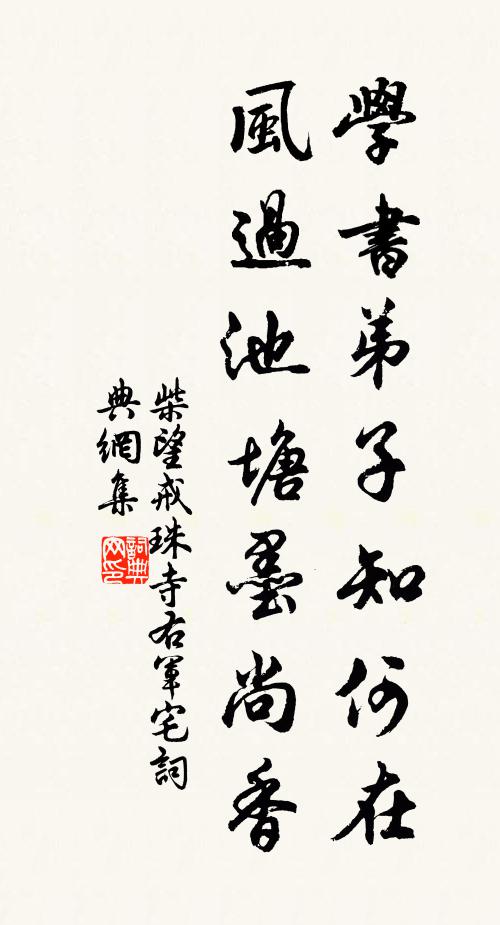 學書弟子知何在
風過池塘墨尚香
柴望戒珠寺右軍宅詞
典網集
詞典
网印